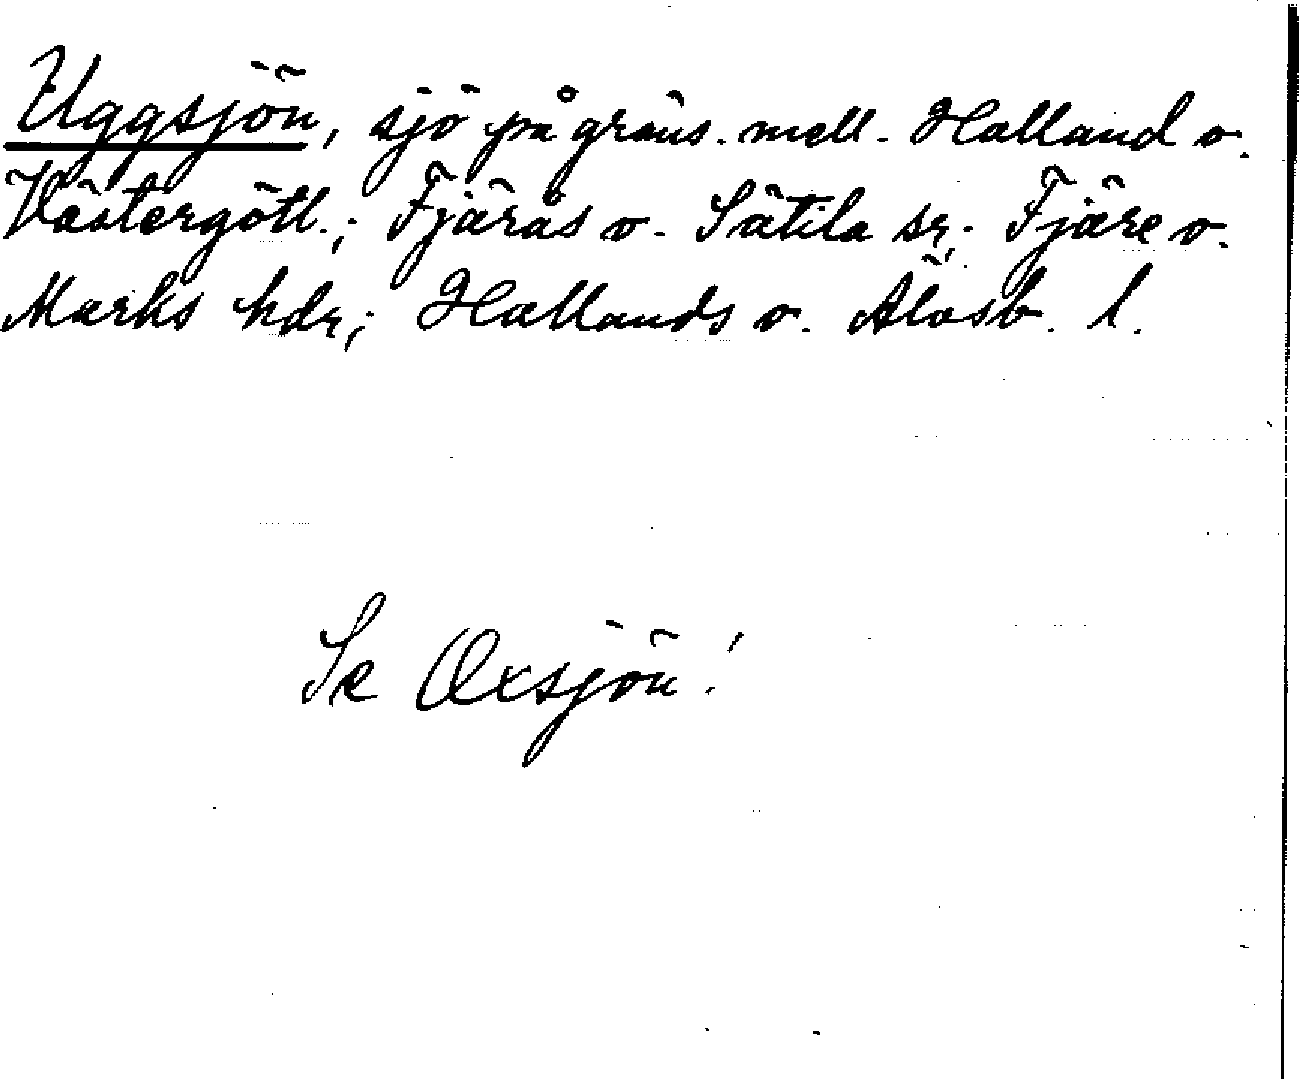 Uggsjön, sjö på gräns. mell. Halland o.
Västergötl.; Fjärås o. Sätila sr; Fjäre o.
Marks hdr; Hallands o. Älvsb. l.
Se Oxsjön!